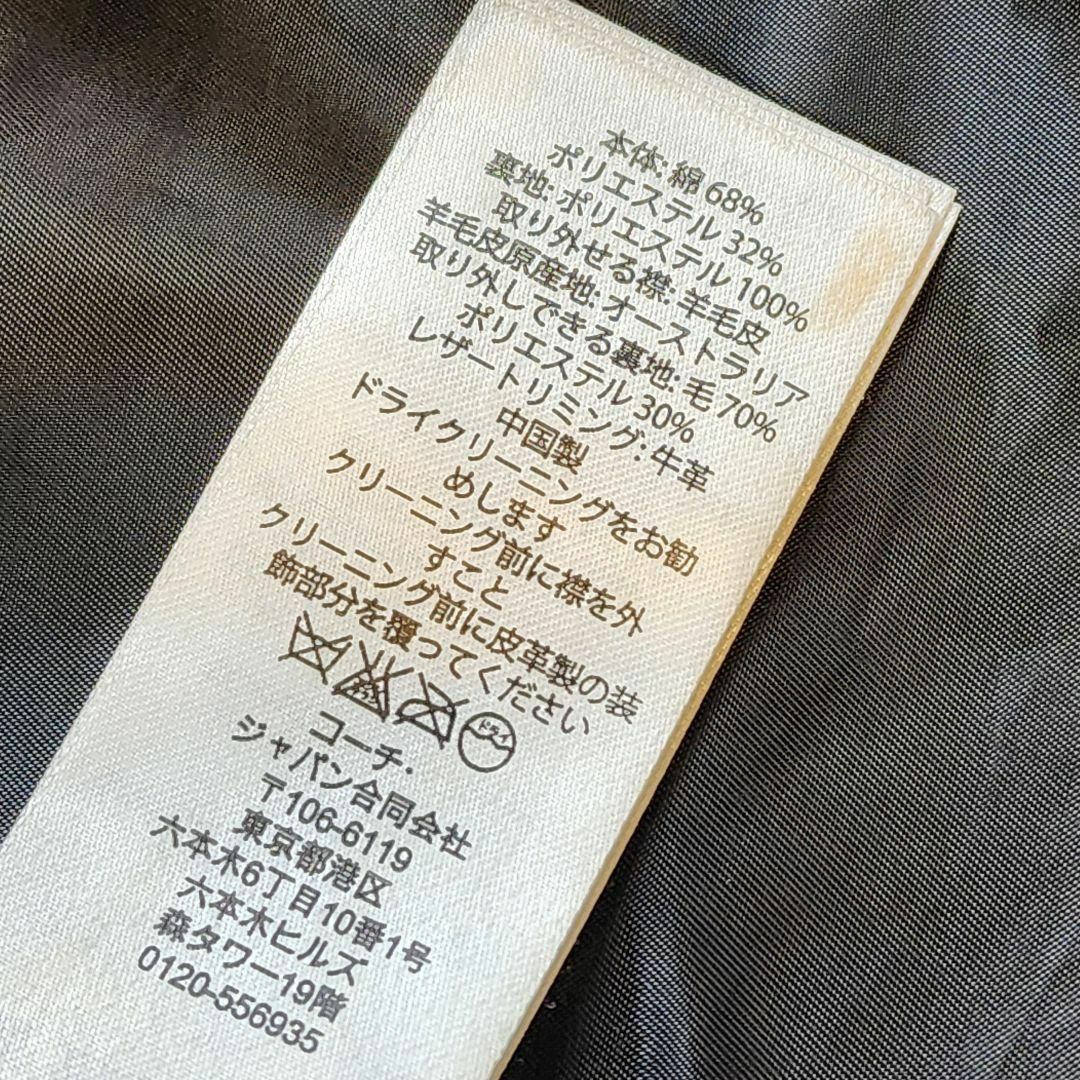 本体: 綿 68%
ポリエステル 32%
裏地: ポリエステル 100%
取り外せる襟: 羊毛皮
羊毛皮原産地: オーストラリア
取り外しできる裏地: 毛 70%
ポリエステル 30%
レザートリミング: 牛革
中国製
ドライクリーニングをお勧
めします
クリーニング前に襟を外
すこと
クリーニング前に皮革製の装
飾部分を覆ってください
ドライ
コーチ・
ジャパン合同会社
〒106-6119
東京都港区
六本木6丁目10番1号
六本木ヒルズ
森タワー19階
0120-556935